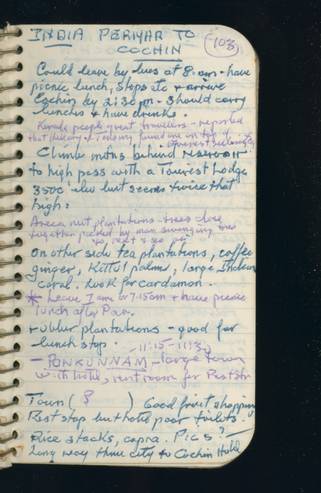 INDIA PERIYAR TO
COCHIN
(103)
Could leave by bus at 8. am - have
picnic lunch, stops etc + arrive
Cochin by 2:30 pm - Should carry
lunches + have drinks.
Kerala people great travellers - reported
that Hillary & Tensing found one on top of
Everest
Climb mtns behind reservoir
to high pass with a Tourist Lodge
3500' elev but seems twice that
high.
Areca nut plantations - trees close
together picked by man swinging from
to next
On other side tea plantations, coffee
ginger, Kittul palms, large Indian
Coral. Look for cardamon.
* Leave 7 am or 7:15am + have picnic
lunch after Pon.
+ rubber plantations - good for
lunch stop. 11:15 - 11:
- PONKUNNAM - large town
with hotel, rent room for Rest Str
Town ( 8 ) Good fruit shopping
Rest stop but hotel poor toilets.
Rice stacks, copra. Pics?
Long way thru city to Cochin Hotel